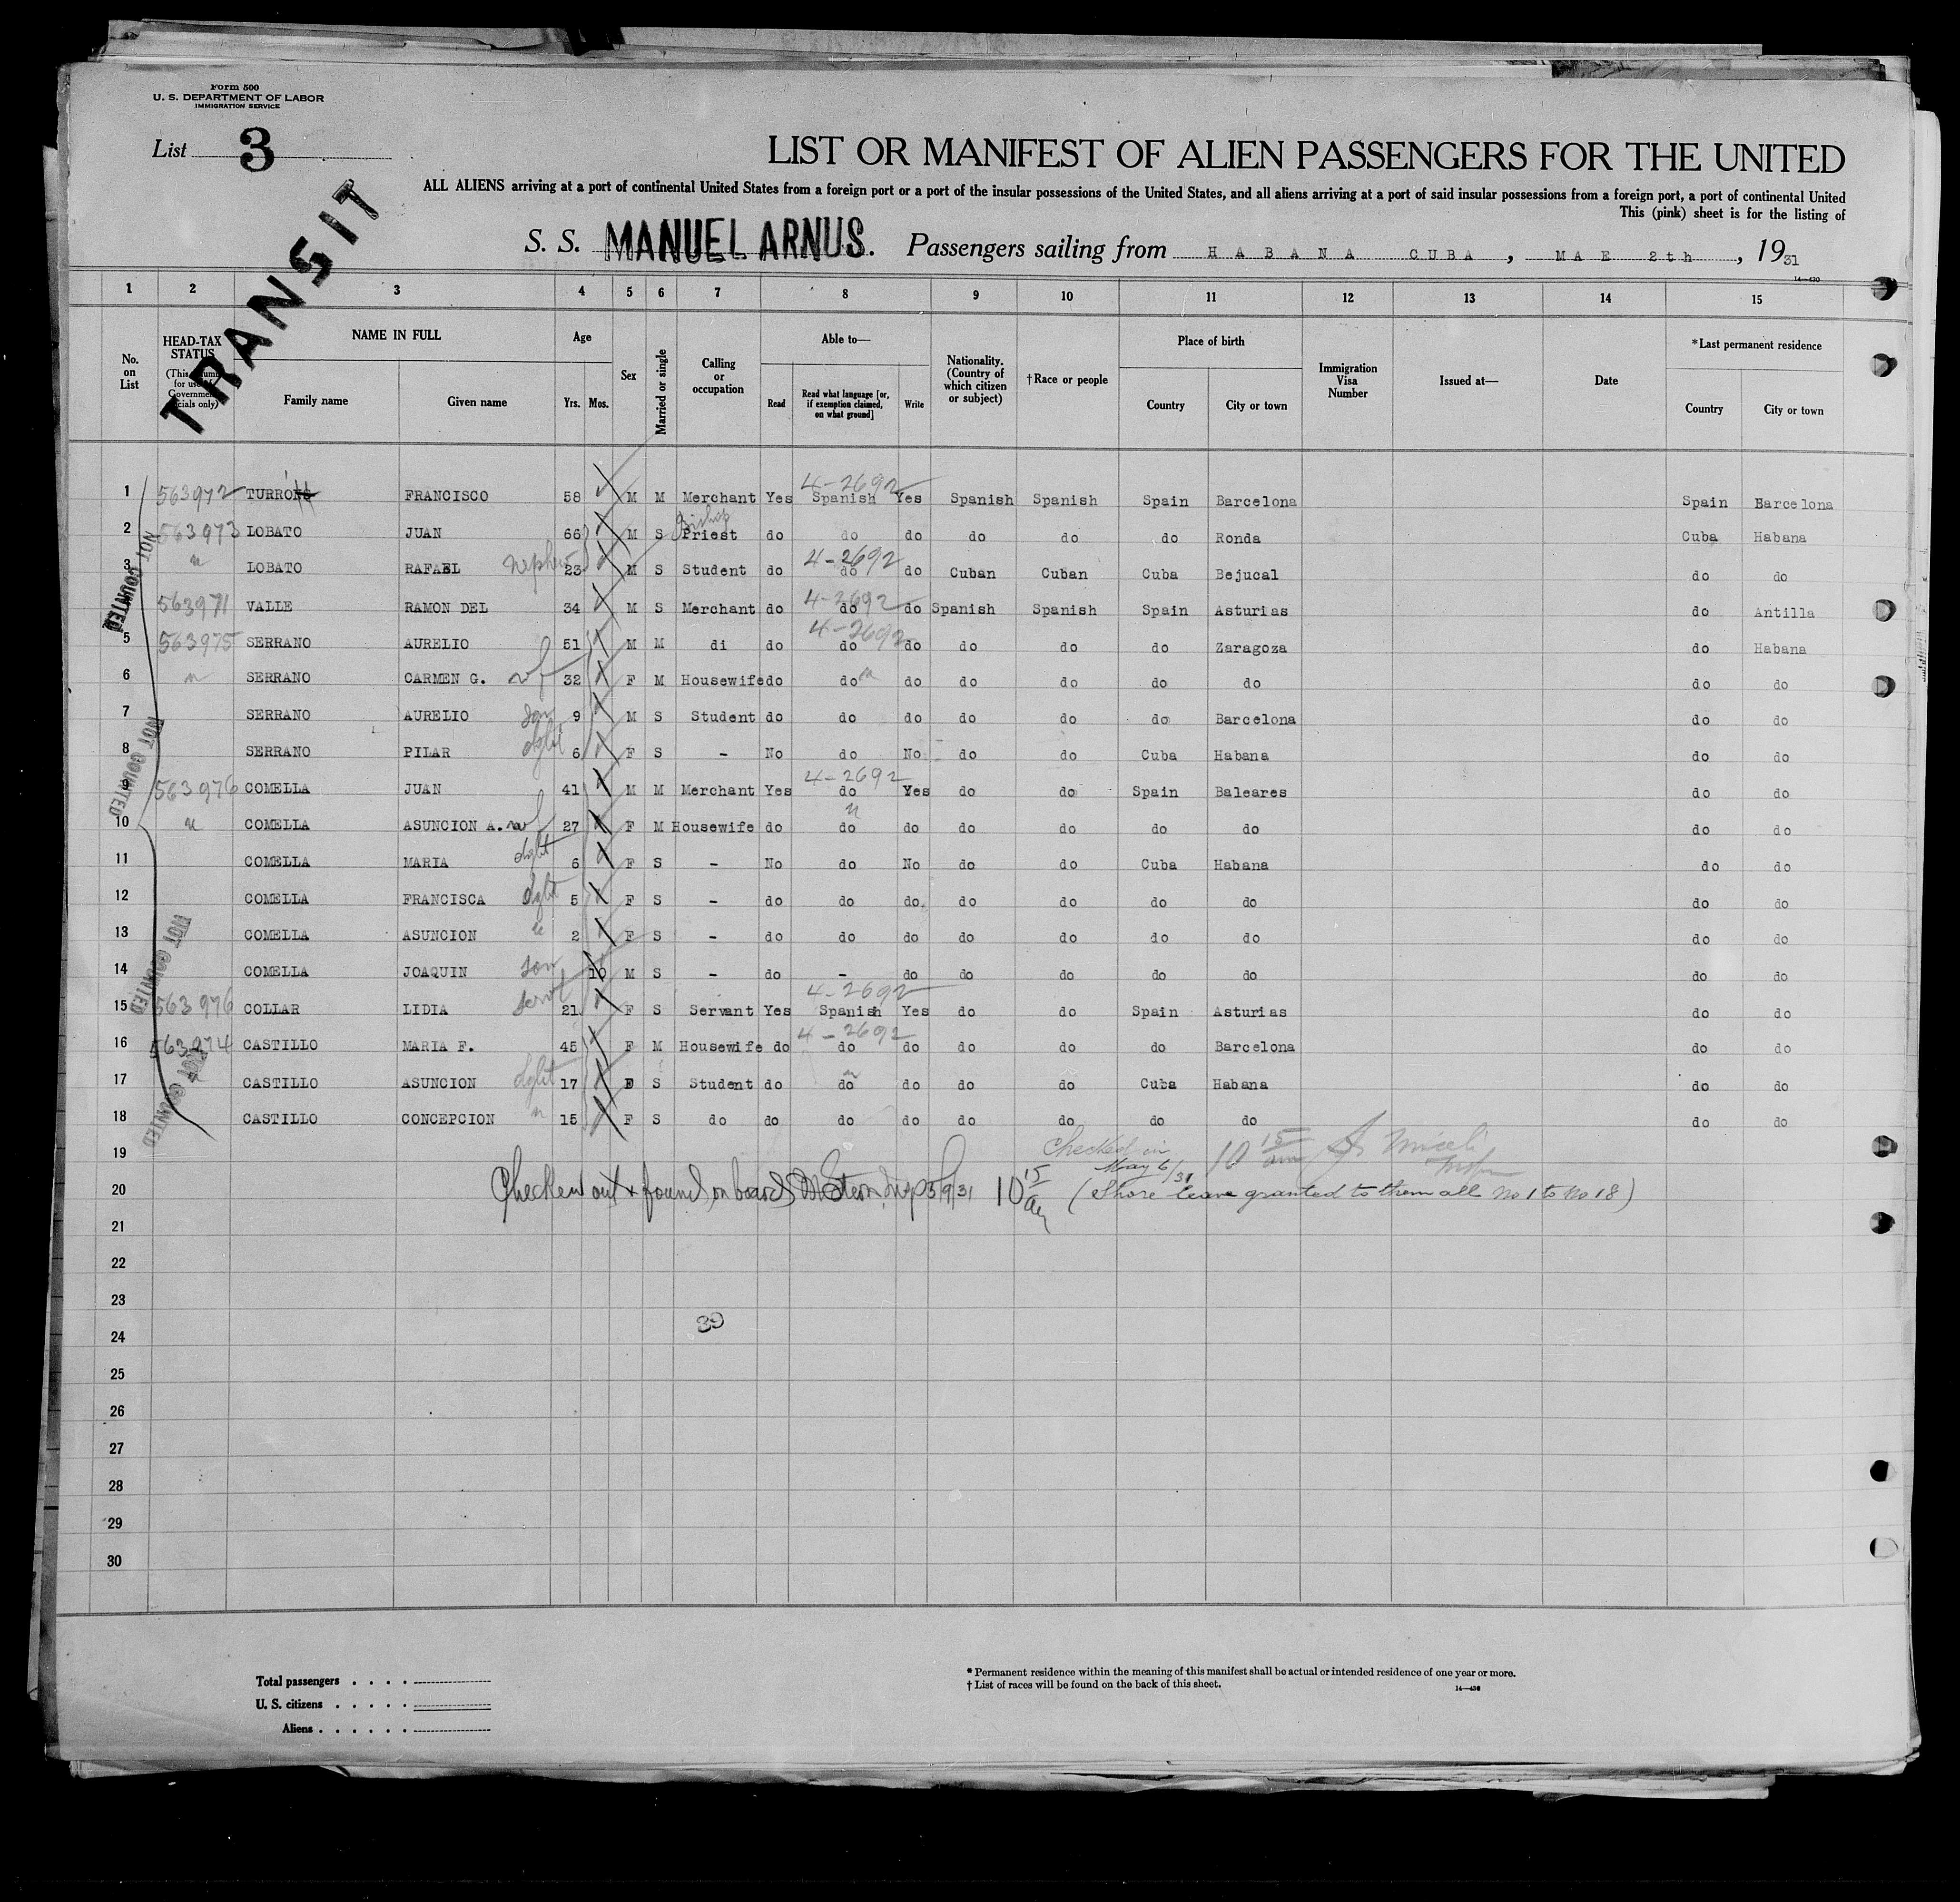 Form 500
U. S. DEPARTMENT OF LABOR
IMMIGRATION SERVICE
List 3
TRANSIT
LIST OR MANIFEST OF ALIEN PASSENGERS FOR THE UNITED
ALL ALIENS arriving at a port of continental United States from a foreign port or a port of the insular possessions of the United States, and all aliens arriving at a port of said insular possessions from a foreign port, a port of continental United
This (pink) sheet is for the listing of
S. S. MANUEL ARNUS. Passengers sailing from HABANA CUBA, MAE 2th, 1931
14—430
1 2 3 4 5 6 7 8 9 10 11 12 13 14 15
No. on List
HEAD-TAX STATUS
NAME IN FULL
Family name Given name
Age
Yrs. Mos.
Sex
Married or single
Calling or occupation
Able to—
Read
Read what language [or, if exemption claimed, on what ground]
Write
Nationality. (Country of which citizen or subject)
†Race or people
Place of birth
Country City or town
Immigration Visa Number
Issued at—
Date
*Last permanent residence
Country City or town
1 563972 TURRONS FRANCISCO 58 M M Merchant Yes 4-2692 Spanish Yes Spanish Spanish Spain Barcelona Spain Barcelona
2 563973 LOBATO JUAN 66 M S Bishop Priest do do do do do do Ronda Cuba Habana
3 " LOBATO RAFAEL nephew 23 M S Student do 4-2692 do do Cuban Cuban Cuba Bejucal do do
563971 VALLE RAMON DEL 34 M S Merchant do 4-2692 do do Spanish Spanish Spain Asturias do Antilla
5 563975 SERRANO AURELIO 51 M M di do 4-2692 do do do do do Zaragoza do Habana
6 " SERRANO CARMEN G. wf 32 F M Housewife do do " do do do do do do do
7 SERRANO AURELIO son 9 M S Student do do do do do do Barcelona do do
8 SERRANO PILAR dght 6 F S - No do No do do Cuba Habana do do
9 563976 COMELLA JUAN 41 M M Merchant Yes 4-2692 do Yes do do Spain Baleares do do
10 " COMELLA ASUNCION A. wf 27 F M Housewife do " do do do do do do do do
11 COMELLA MARIA dght 6 F S - No do No do do Cuba Habana do do
12 COMELLA FRANCISCA dght 5 F S - do do do do do do do do do
13 COMELLA ASUNCION " 2 F S - do do do do do do do do do
14 COMELLA JOAQUIN son 10 M S - do - do do do do do do do
15 563976 COLLAR LIDIA servt 21 F S Servant Yes 4-2692 Spanish Yes do do Spain Asturias do do
16 563974 CASTILLO MARIA F. 45 F M Housewife do 4-2692 do do do do do Barcelona do do
17 CASTILLO ASUNCION dght 17 F S Student do " do do do do Cuba Habana do do
18 CASTILLO CONCEPCION " 15 F S do do do do do do do do do do
NOT COUNTED
NOT COUNTED
NOT COUNTED
NOT COUNTED
19 Checked in May 6/31 10 15 am
20 Checked out & found on board Stern Insp 5/9/31 10 15 am (Shore leave granted to them all No 1 to No 18)
21
22
23
39
24
25
26
27
28
29
30
Total passengers
U. S. citizens
Aliens
* Permanent residence within the meaning of this manifest shall be actual or intended residence of one year or more.
† List of races will be found on the back of this sheet.
14—430